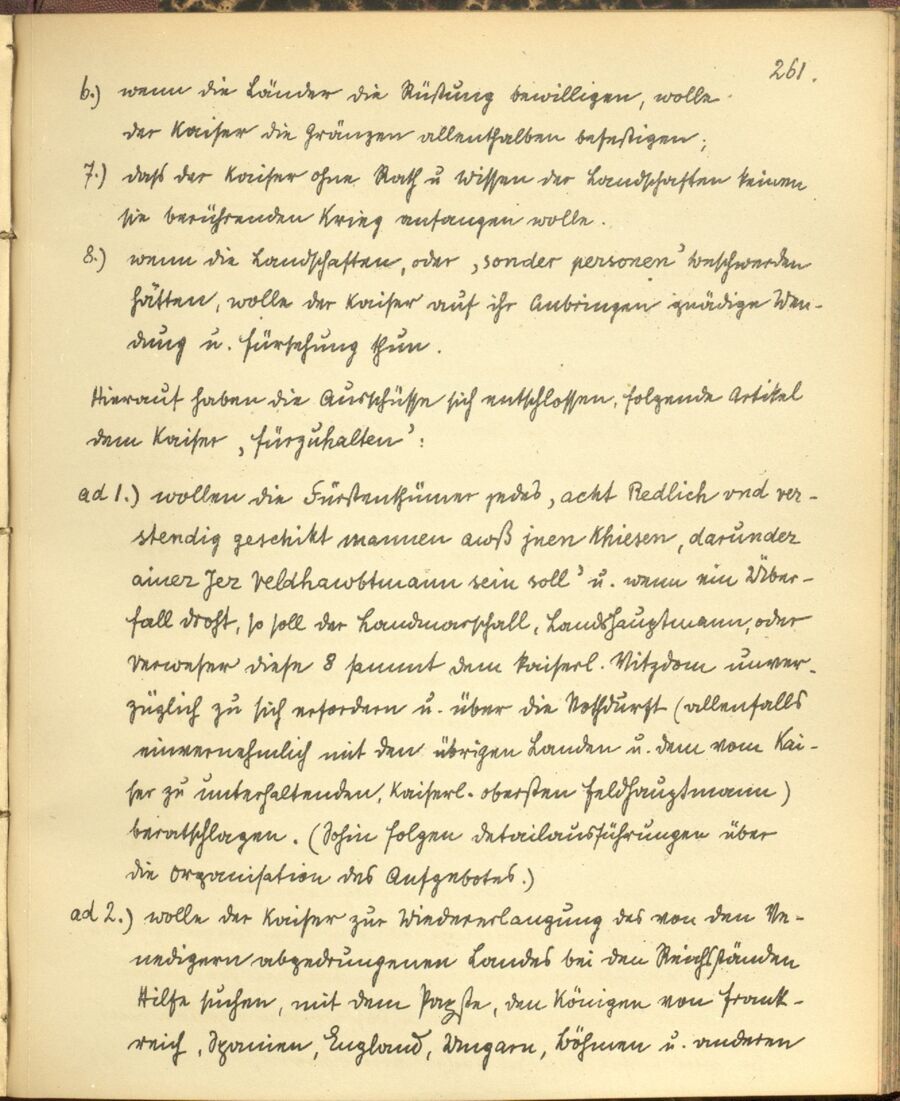 261.
6.) wenn die Länder die Rüstung bewilligen, wolle
der Kaiser die Gränzen allenthalben befestigen;
7.) daß der Kaiser ohne Rath u Wissen der Landschaften keinen
sie berührenden Krieg anfangen wolle.
8.) wenn die Landschaften, oder ‚sonder personen' beschwerden
hätten, wolle der Kaiser auf ihr Anbringen gnädige Wen-
dung u. fürsehung thun.
Hierauf haben die Ausschüsse sich entschlossen, folgende Artikel
dem Kaiser ‚fürzuhalten':
ad 1.) wollen die Fürstenthümer jedes ‚acht Redlich vnd ver-
stendig geschikt mannen awß jnen Khiesen, darunder
ainer Jer Veldhawbtmann sein soll' u. wenn ein Über-
fall droht, so soll der Landmarschall, Landshauptmann, oder
Verweser diese 8 sammt dem kaiserl. Vitzdom unver-
züglich zu sich erfordern u. über die Nothdurft (allenfalls
einvernehmlich mit den übrigen Landen u. dem vom Kai-
ser zu unterhaltenden, Kaiserl. obersten Feldhauptmann)
beratschlagen. (Sohin folgen Detailausführungen über
die Organisation des Aufgebotes.)
ad 2.) wolle der Kaiser zur Wiedererlangung des von den Ve-
nedigern abgedrungenen Landes bei den Reichsständen
Hilfe suchen, mit dem Papste, den Königen von Frank-
reich, Spanien, England, Ungarn, Böhmen u. anderen